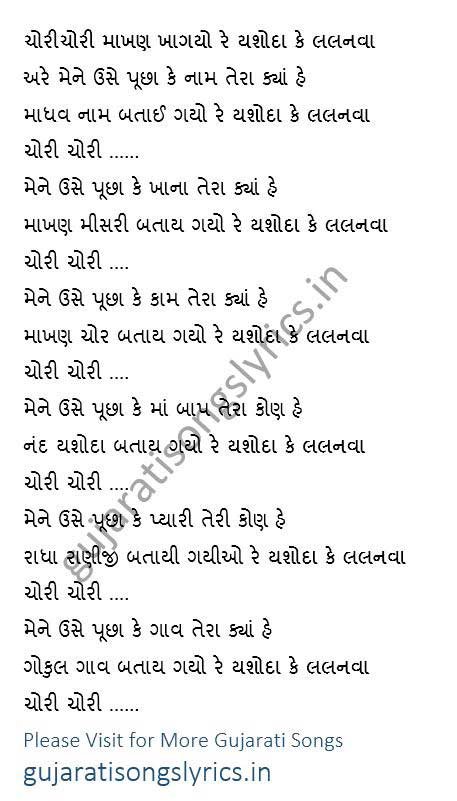 ચોરીચોરી માખણ ખાગયો રે યશોદા કે લલનવા
અરે મેને ઉસે પૂછા કે નામ તેરા ક્યાં હે
માધવ નામ બતાઈ ગયો રે યશોદા કે લલનવા
ચોરી ચોરી ......
મેને ઉસે પૂછા કે ખાના તેરા ક્યાં હે
માખણ મીસરી બતાય ગયો રે યશોદા કે લલનવા
ચોરી ચોરી ....
મેને ઉસે પૂછા કે કામ તેરા ક્યાં હે
માખણ ચોર બતાય ગયો રે યશોદા કે લલનવા
ચોરી ચોરી ....
મેને ઉસે પૂછા કે માં બાપ તેરા કોણ હે
નંદ યશોદા બતાય ગયો રે યશોદા કે લલનવા
ચોરી ચોરી ....
મેને ઉસે પૂછા કે પ્યારી તેરી કોણ હે
રાધા રાણીજી બતાયી ગયીઓ રે યશોદા કે લલનવા
ચોરી ચોરી ....
મેને ઉસે પૂછા કે ગાવ તેરા ક્યાં હે
ગોકુલ ગાવ બતાય ગયો રે યશોદા કે લલનવા
ચોરી ચોરી ......
Please Visit for More Gujarati Songs
gujaratisongslyrics.in
gujaratisongslyrics.in